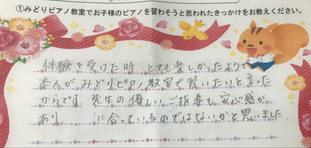 ①みどりピアノ教室でお子様のピアノを習わそうと思われたきっかけをお教えください。
体験を受けた時、とても楽しかったようで
本人がみどりピアノ教室で習いたいと言った
からです。先生の優しいご指導も安心感が
あり に合っているのではないかと思いました